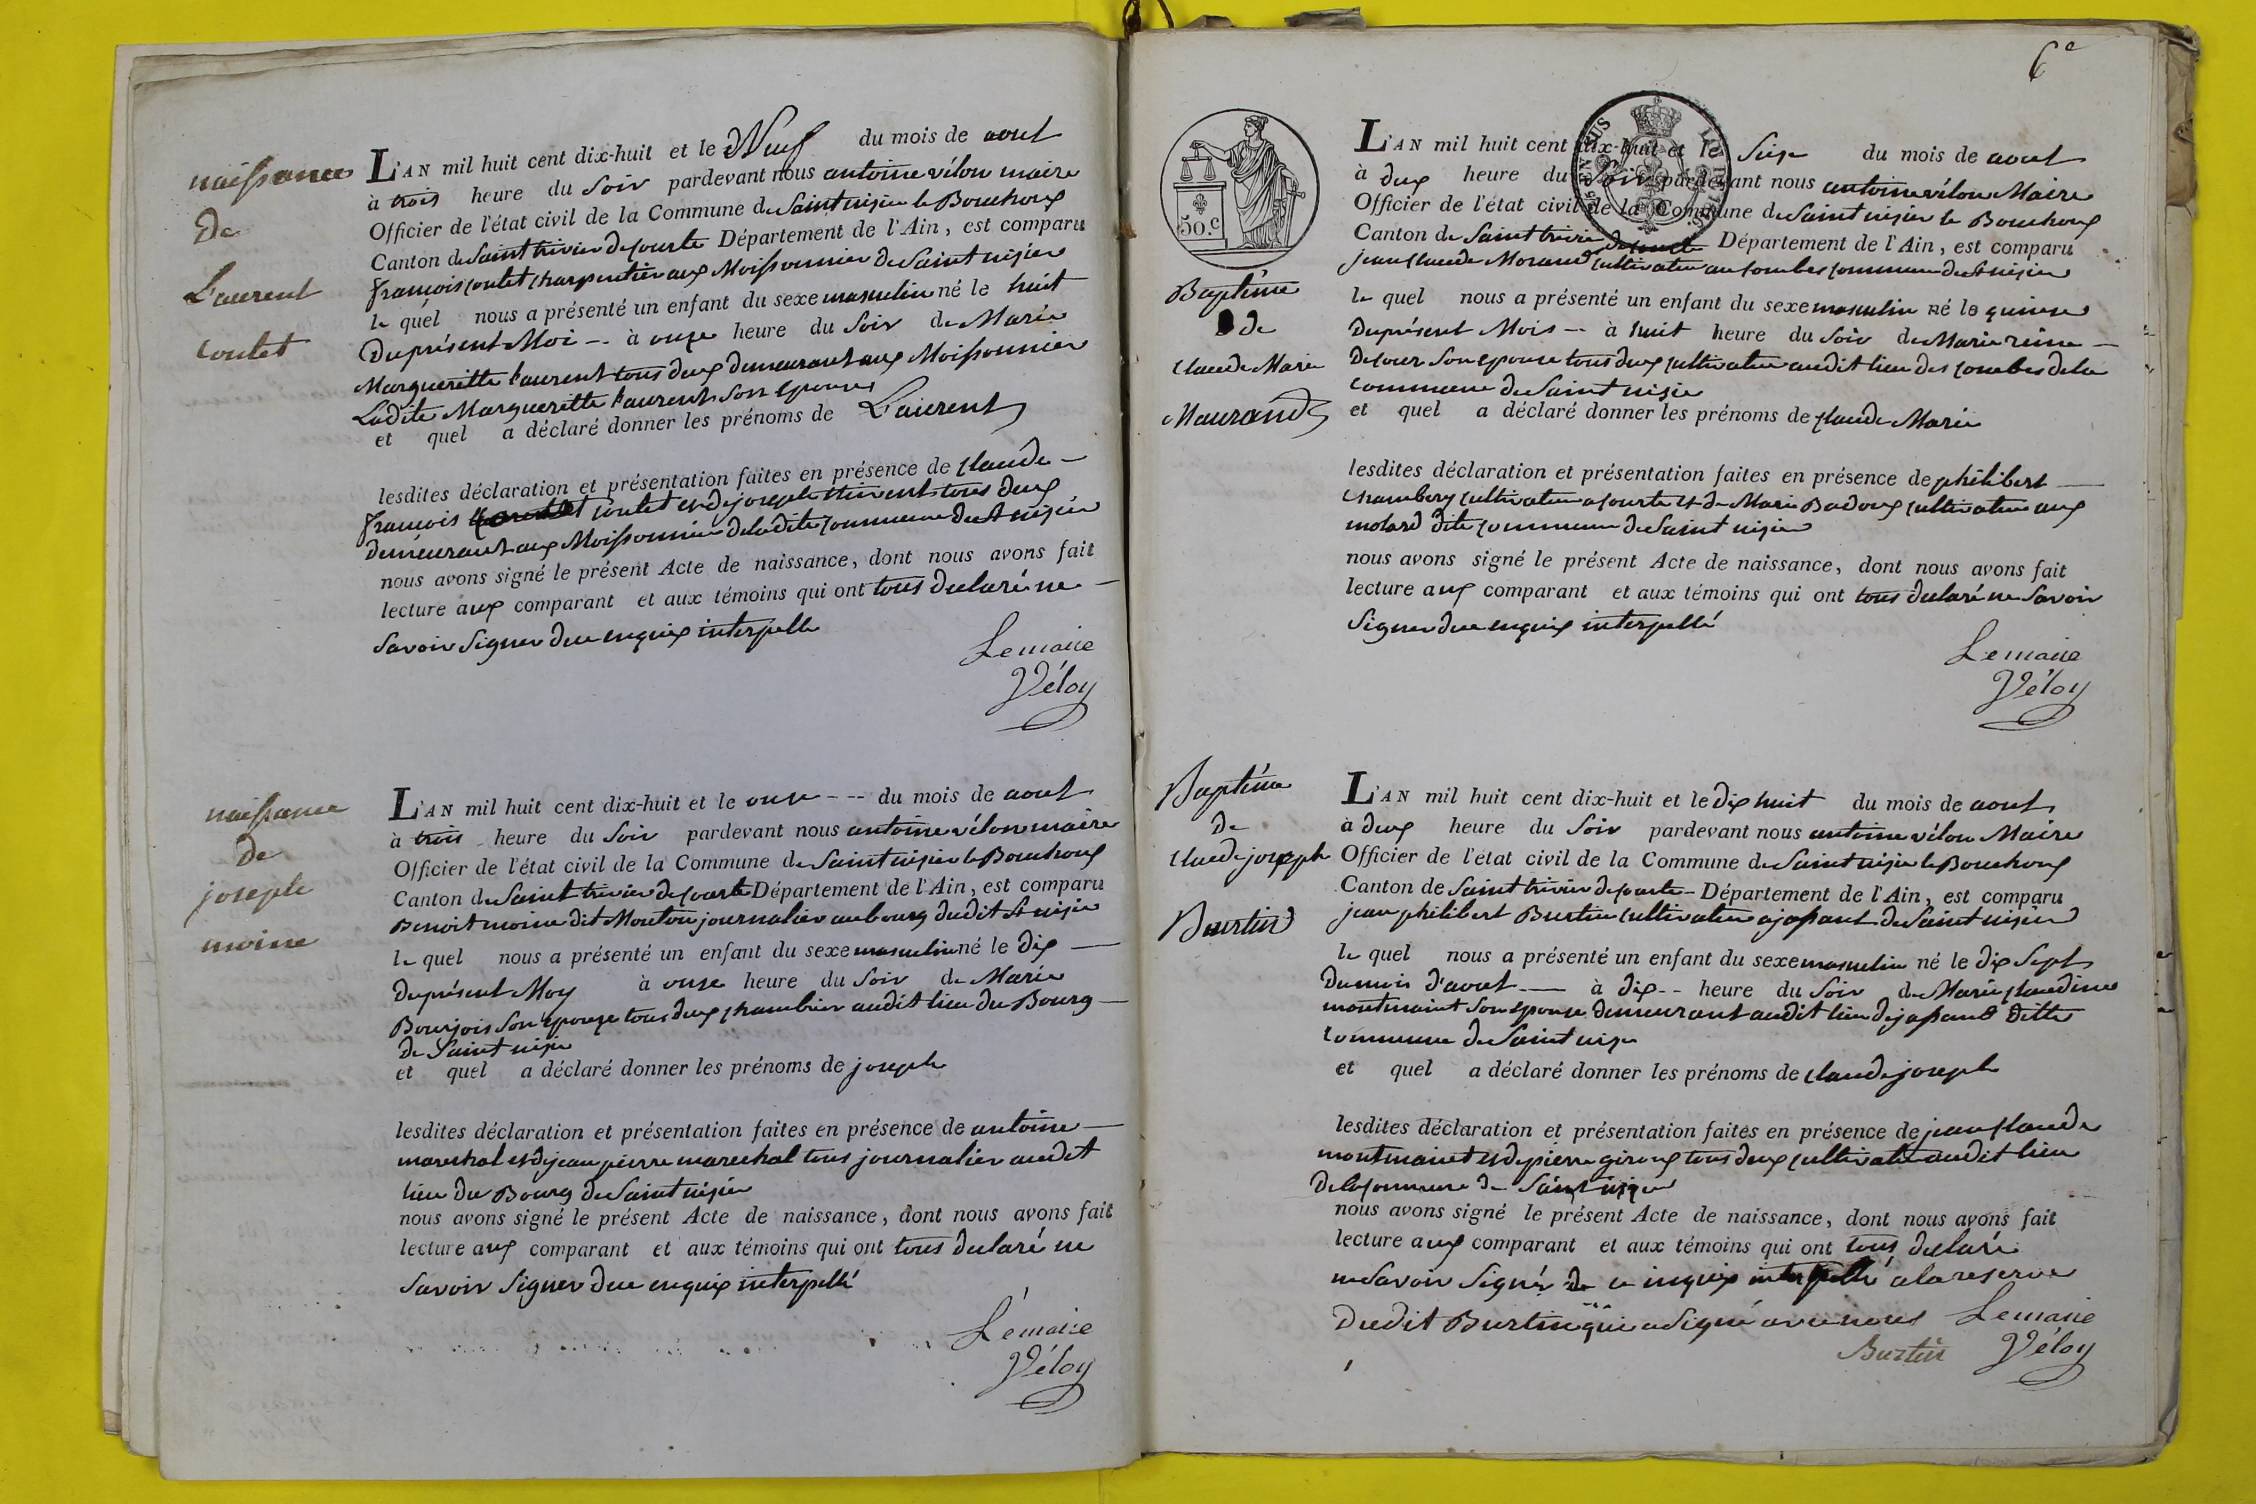 naissance
de
Laurent
Coutet
L'AN mil huit cent dix-huit et le Neuf du mois de aout
à trois heure du Soir pardevant nous antoine vélou maire
Officier de l'état civil de la Commune de Saint nizier le Bouchoux
Canton de Saint trivier de Courte Département de l'Ain, est comparu
françois Coutet Charpentier aux Moissonnier de Saint nizier
le quel nous a présenté un enfant du sexe masculin né le huit
Duprésent Moi -- à onze heure du Soir de Marie
Margueritte Laurent tous deux demeurant aux Moissonnier
Ladite Margueritte Laurent Son Epouse
et quel a déclaré donner les prénoms de Laurent
lesdites déclaration et présentation faites en présence de Claude
françois Coutet et de joseph tous deux
demeurant aux Moissonnier deladite Commune de St nizier
nous avons signé le présent Acte de naissance, dont nous avons fait
lecture aux comparant et aux témoins qui ont tous declaré ne
Savoir Signer due enquix interpelle
Lemaire
Véloy
naissance
de
joseph
moine
L'AN mil huit cent dix-huit et le onze --- du mois de aout
à trois heure du Soir pardevant nous antoine vélou maire
Officier de l'état civil de la Commune de Saint nizier le Bouchoux
Canton de Saint trivier de Courte Département de l'Ain, est comparu
Benoit moine dit Mouton journalier au bourg dudit St nizier
le quel nous a présenté un enfant du sexe masculin né le dix
Duprésent Moy à onze heure du Soir de Marie
Bourjois Son Epouze tous deux Chambier audit lieu du Bourg
de Saint nizie
et quel a déclaré donner les prénoms de joseph
lesdites déclaration et présentation faites en présence de antoine
marechal et de jean pierre marechal tous journalier audit
lieu du Bourg de Saint nizier
nous avons signé le présent Acte de naissance, dont nous avons fait
lecture aux comparant et aux témoins qui ont tous declaré ne
Savoir Signer due enquix interpellé
Lemaire
Véloy
6e
50.c
Baptême
de
Claude Marie
Maurand
L'AN mil huit cent dix-huit et le Seize du mois de aout
à deux heure du Soir pardevant nous antoine vélou Maire
Officier de l'état civil de la Commune de Saint nizier le Bouchoux
Canton de Saint trivier de Courte Département de l'Ain, est comparu
jean Claude Morand Cultivateur au Combes Commune de St nizier
le quel nous a présenté un enfant du sexe masculin né le quinze
Duprésent Mois -- à huit heure du Soir de Marie reine
Decour Son epouse tous deux Cultivateur audit lieu des Combes dela
Commune de Saint nizie
et quel a déclaré donner les prénoms de Claude Marie
lesdites déclaration et présentation faites en présence de philibert
Chambery Cultivateur a Courte et de Marie Badoux Cultivateur aux
molard dite Commune de Saint nizier
nous avons signé le présent Acte de naissance, dont nous avons fait
lecture aux comparant et aux témoins qui ont tous declaré ne Savoir
Signer due enquix interpellé
Lemaire
Véloy
Baptême
de
Claude joseph
Burtin
L'AN mil huit cent dix-huit et le dix huit du mois de aout
à deux heure du Soir pardevant nous antoine vélou Maire
Officier de l'état civil de la Commune de Saint nizier le Bouchoux
Canton de Saint trivier de Courte - Département de l'Ain, est comparu
jean philibert Burtin Cultivateur a jassant de Saint nizier
le quel nous a présenté un enfant du sexe masculin né le dix Sept
Dumois d'aout -- à dix -- heure du Soir de Marie Claudine
montmaint Son epouse demeurant audit lieu de jassand ditte
Commune de Saint nizie
et quel a déclaré donner les prénoms de Claude joseph
lesdites déclaration et présentation faites en présence de jean Claude
montmaint et de pierre giroux tous deux Cultivateur audit lieu
De la Commune de Saint nizier
nous avons signé le présent Acte de naissance, dont nous avons fait
lecture aux comparant et aux témoins qui ont tous declaré
ne Savoir Signér de ce inquix interpellé a la reserve
Dudit Burtin qui a Signé avec nous Lemaire
Burtin Véloy